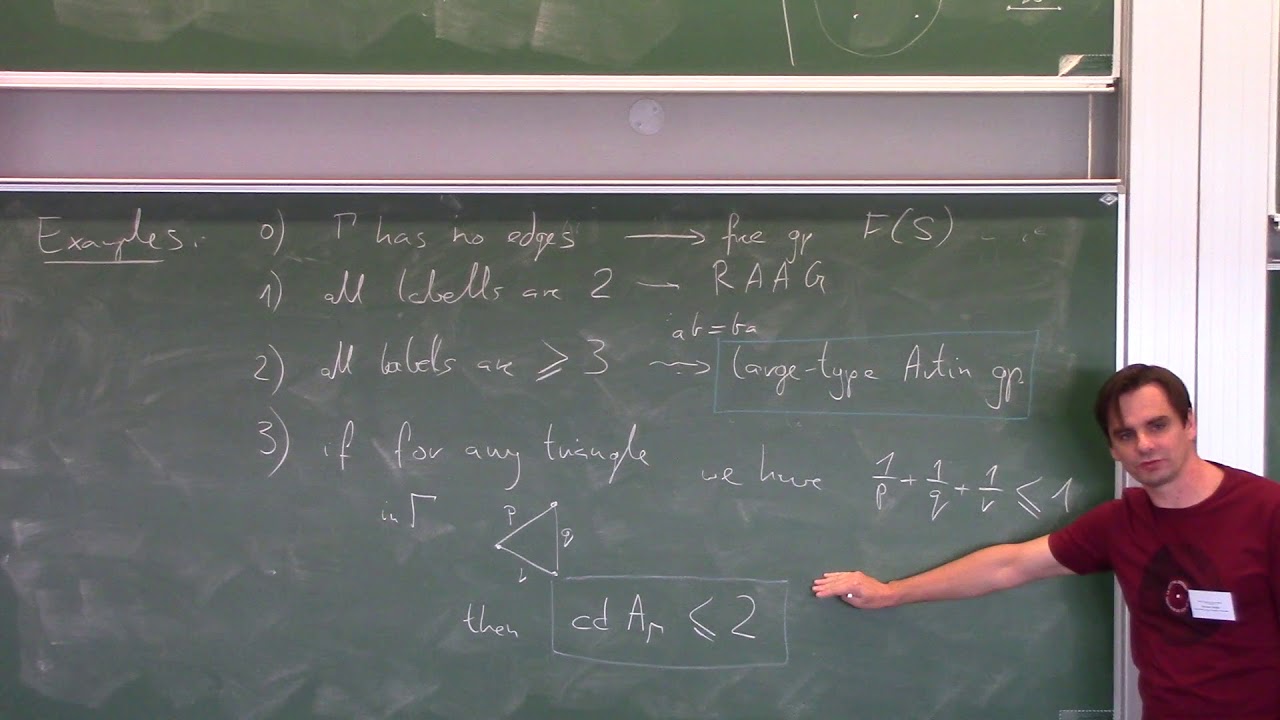 Examples. 0) Γ has no edges → free gp F(S)
1) all labells are 2 → RAAG
ab = ba
2) all labels are ⩾ 3 ⇝ large-type Artin gp
3) if for any triangle we have 1/p + 1/q + 1/r ⩽ 1
in Γ
p
q
r
then cd A_Γ ⩽ 2